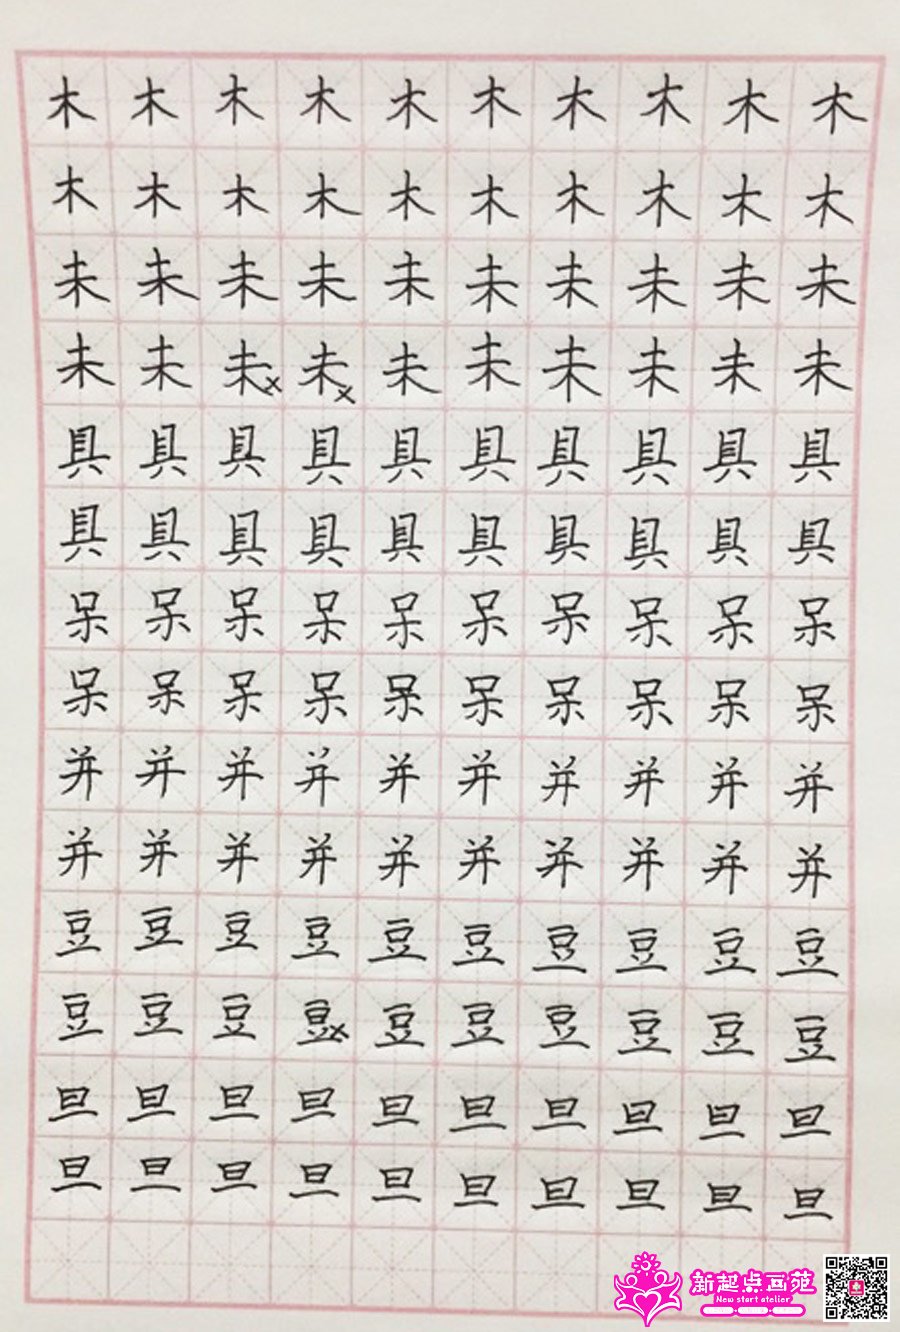 木 木 木 木 木 木 木 木 木 木
木 木 木 木 木 木 木 木 木 木
未 未 未 未 未 未 未 未 未 未
未 未 未 未 未 未 未 未 未 未
具 具 具 具 具 具 具 具 具 具
具 具 具 具 具 具 具 具 具 具
呆 呆 呆 呆 呆 呆 呆 呆 呆 呆
呆 呆 呆 呆 呆 呆 呆 呆 呆 呆
并 并 并 并 并 并 并 并 并 并
并 并 并 并 并 并 并 并 并 并
豆 豆 豆 豆 豆 豆 豆 豆 豆 豆
豆 豆 豆 豆 豆 豆 豆 豆 豆 豆
旦 旦 旦 旦 旦 旦 旦 旦 旦 旦
旦 旦 旦 旦 旦 旦 旦 旦 旦 旦
新起点画苑
New start atelier